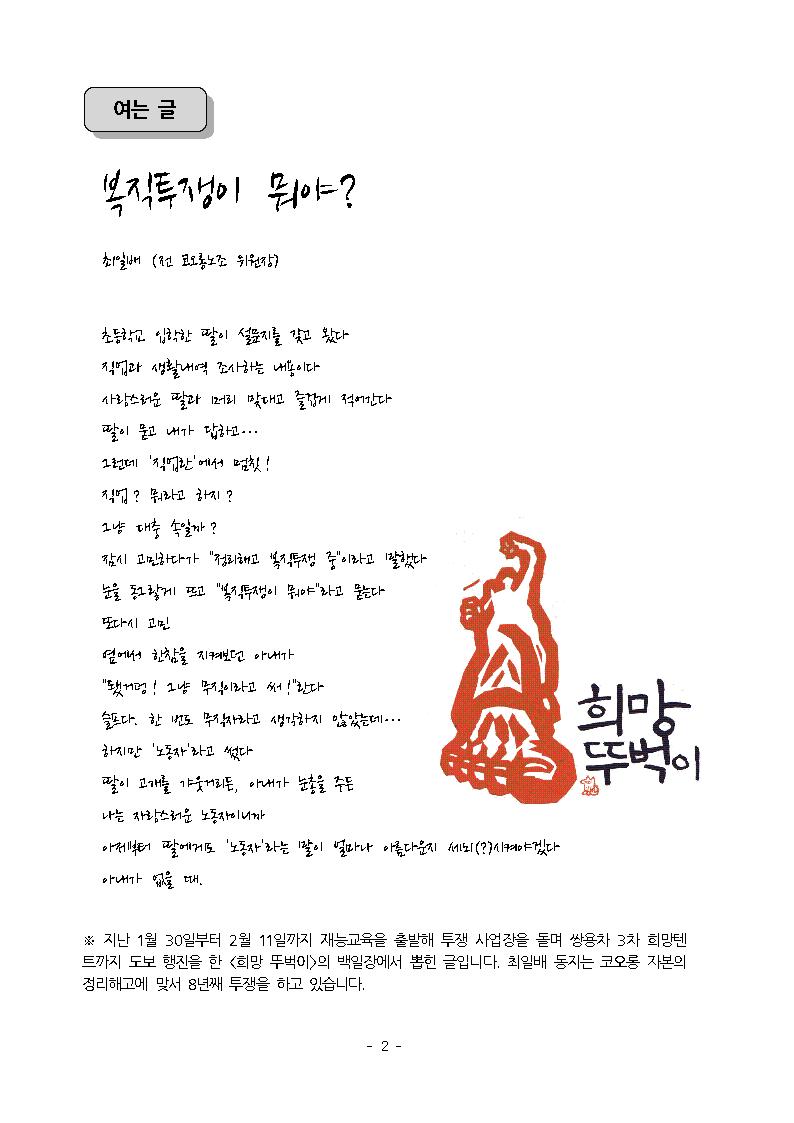 여는 글
복직투쟁이 뭐야?
최일배 (전 코오롱노조 위원장)
초등학교 입학한 딸이 설문지를 갖고 왔다
직업과 생활내역 조사하는 내용이다
사랑스러운 딸과 머리 맞대고 즐겁게 적어간다
딸이 묻고 내가 답하고···
그런데 '직업란'에서 멈칫!
직업? 뭐라고 하지?
그냥 대충 속일까?
잠시 고민하다가 "정리해고 복직투쟁 중"이라고 말했다
눈을 동그랗게 뜨고 "복직투쟁이 뭐야"라고 묻는다
또다시 고민
옆에서 한참을 지켜보던 아내가
"됐거덩! 그냥 무직이라고 써!"란다
슬프다. 한 번도 무직자라고 생각하지 않았는데···
하지만 '노동자'라고 썼다
딸이 고개를 갸웃거리든, 아내가 눈총을 주든
나는 자랑스러운 노동자이니까
아직부터 딸에게도 '노동자'라는 말이 얼마나 아름다운지 세뇌(?)시켜야겠다
아내가 없을 때.
희망
뚜벅이
※ 지난 1월 30일부터 2월 11일까지 재능교육을 출발해 투쟁 사업장을 돌며 쌍용차 3차 희망텐
트까지 도보 행진을 한 <희망 뚜벅이>의 백일장에서 뽑힌 글입니다. 최일배 동지는 코오롱 자본의
정리해고에 맞서 8년째 투쟁을 하고 있습니다.
- 2 -